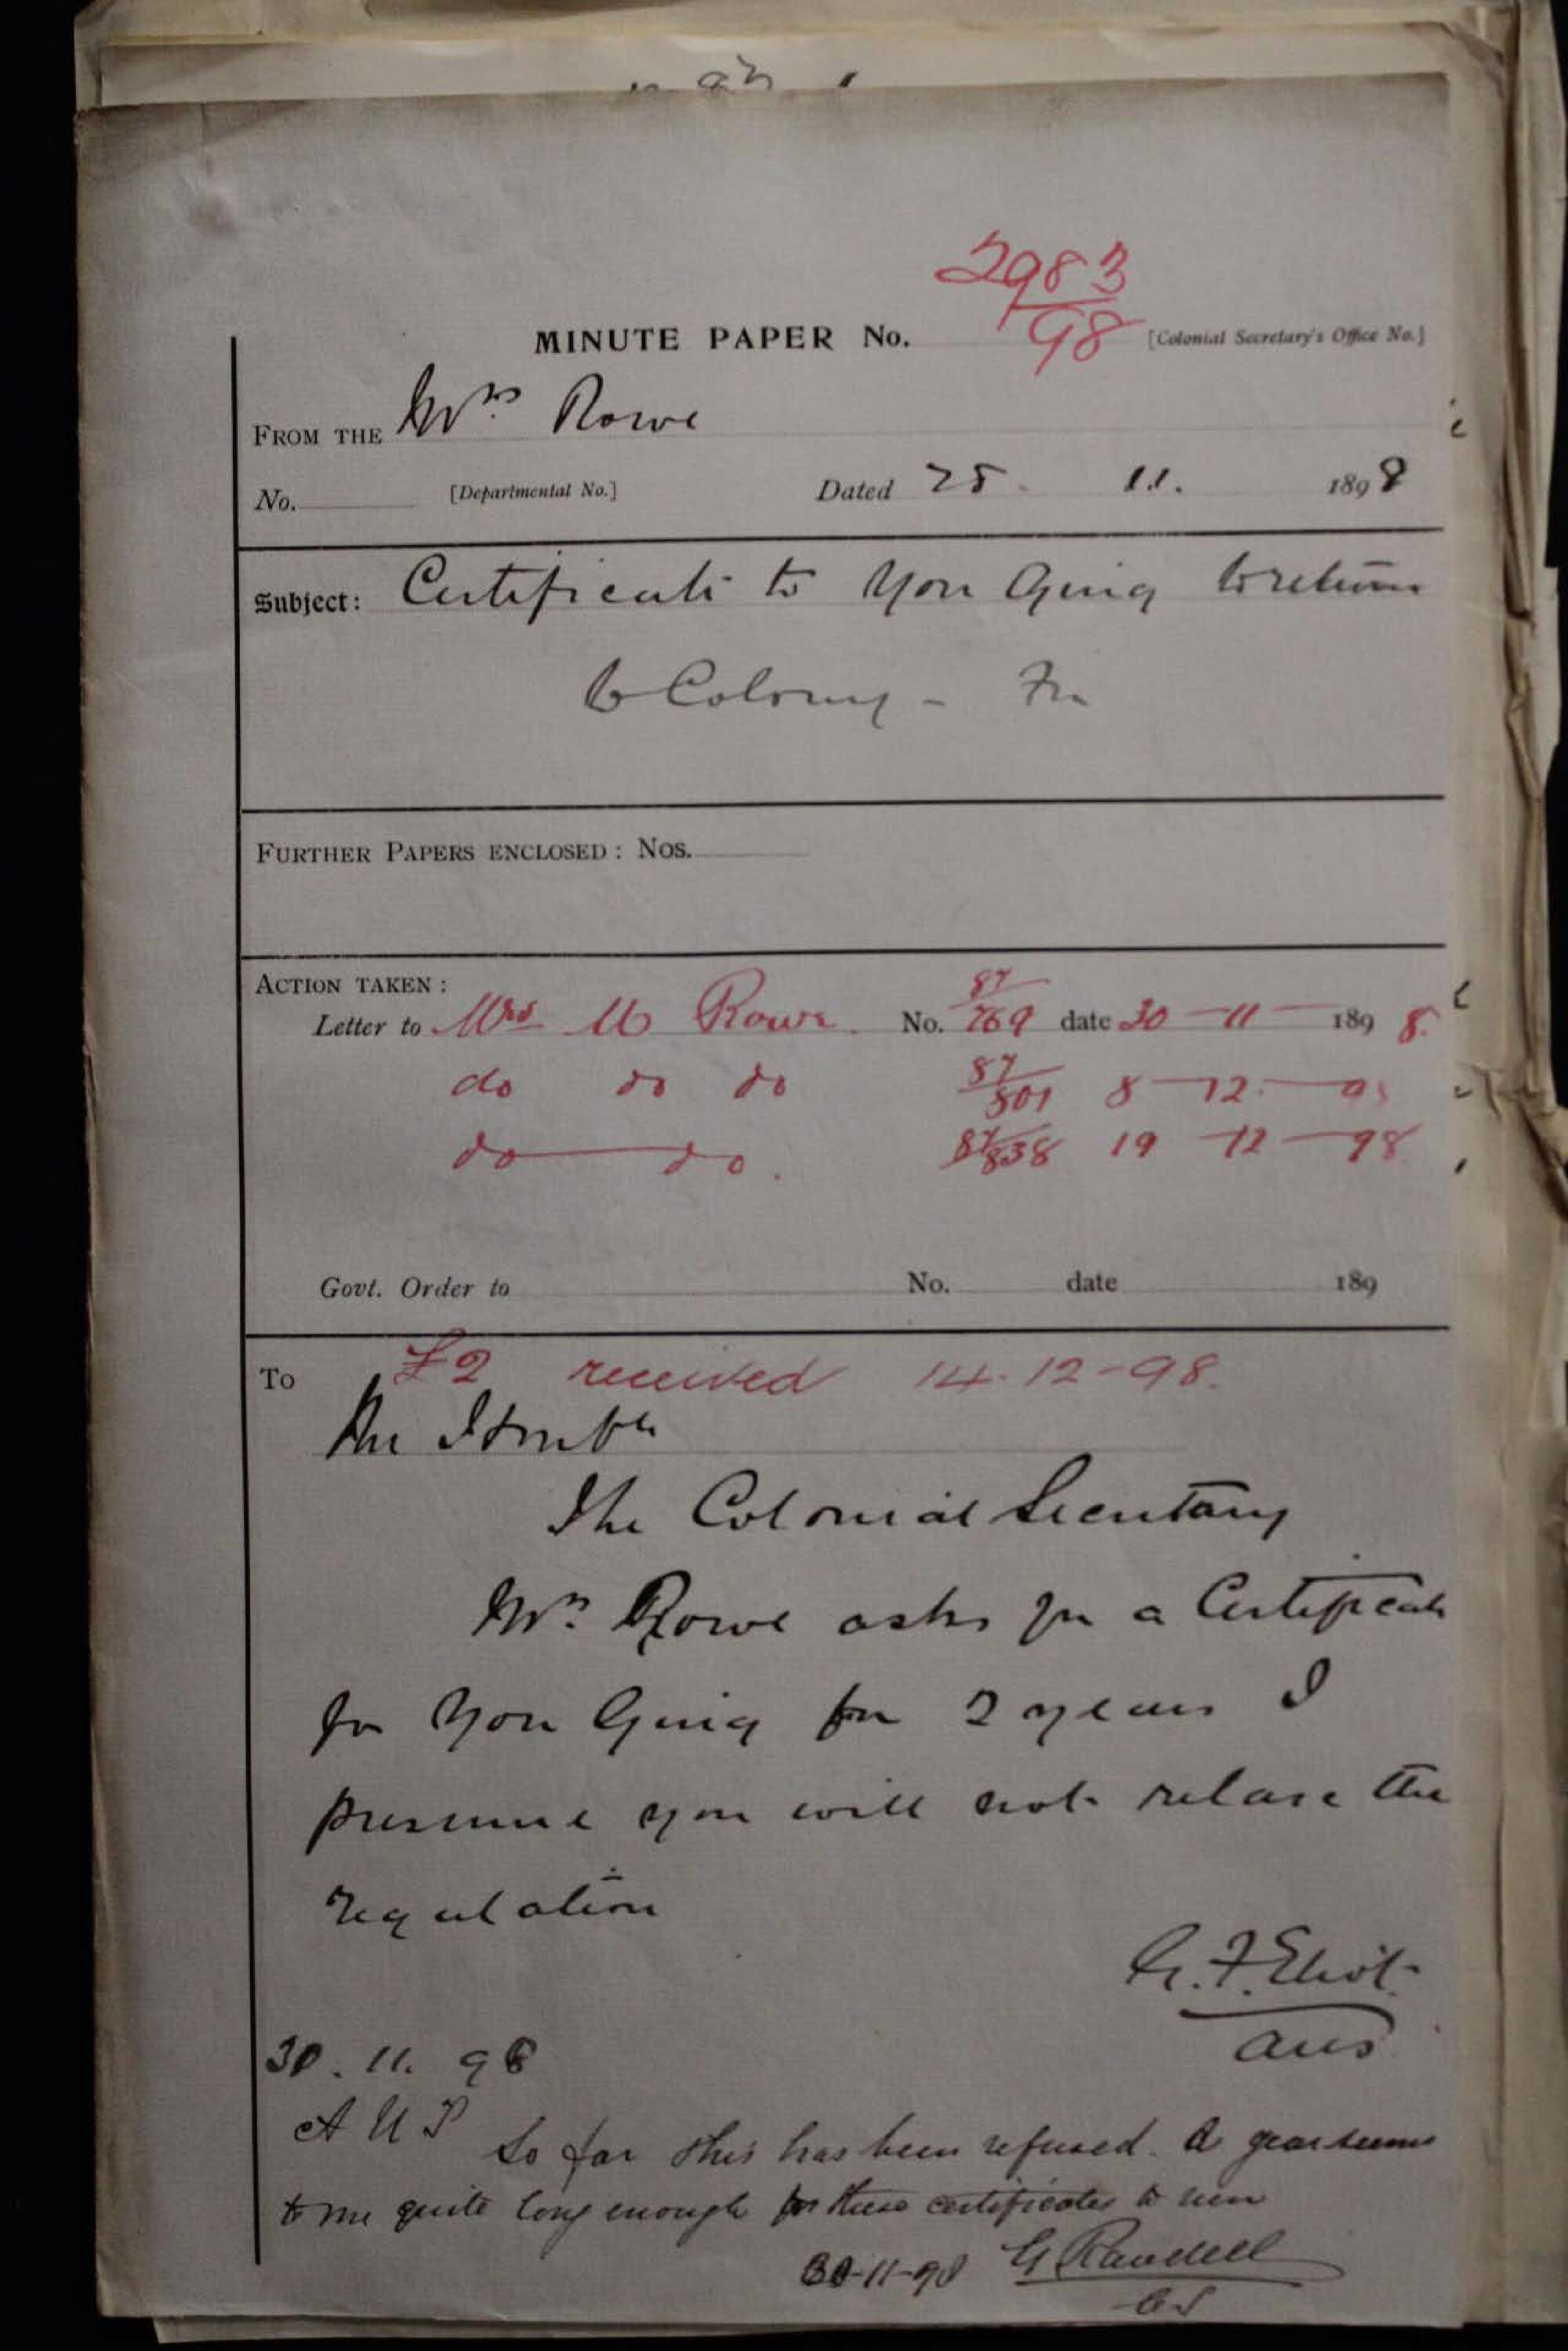 2983
98
MINUTE PAPER No. [Colonial Secretary's Office No.]
FROM THE Mrs Rowe
No. [Departmental No.] Dated 25. 11. 1898
Subject: Certificate to You Ging to return
to Colony -
FURTHER PAPERS ENCLOSED: Nos.
ACTION TAKEN:
Letter to Mrs M Rowe. No. 87/769 date 30-11-1898.
do do do 87/801 8-12-98
do do. 87/838 19-12-98
Govt. Order to No. date 189
To £2 received 14.12-98.
The Honble
The Colonial Secretary
Mrs. Rowe asks for a Certificate
for You Ging for 2 years I
presume you will not relax the
regulation
G. F. Eliot.
AUS
30. 11. 98
A U S So far this has been refused. A year seems
to me quite long enough for these certificates to run
30-11-98 G Randell
CS